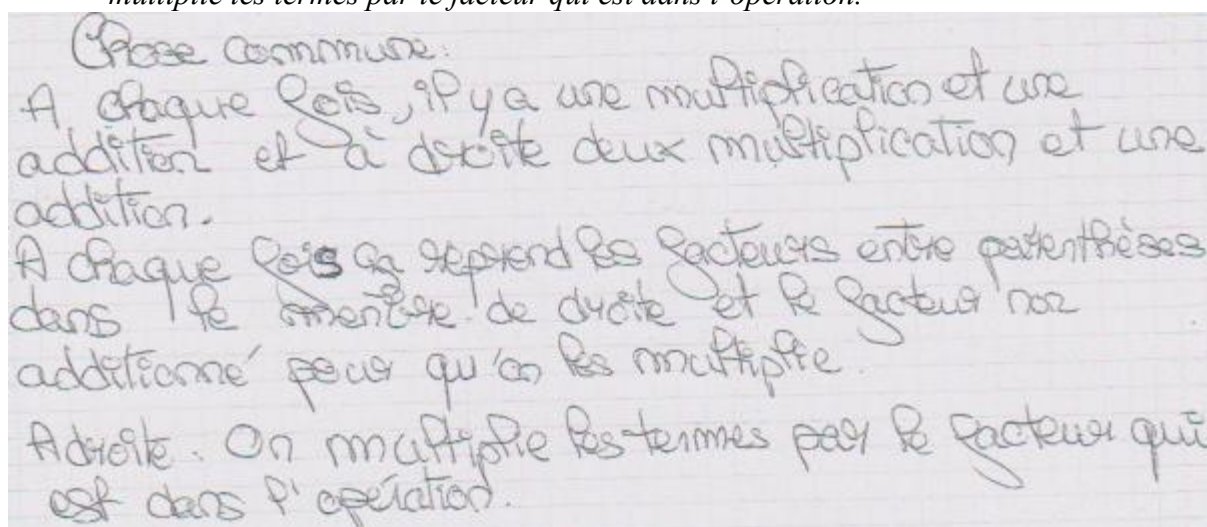 multiplie les termes par le facteur qui est dans l'opération.
Chose commune:
A chaque fois, il y a une multiplication et une
addition et à droite deux multiplication et une
addition.
A chaque fois on reprend les facteurs entre parenthèses
dans le membre de droite et le facteur non
additionné pour qu'on les multiplie.
A droite. On multiplie les termes par le facteur qui
est dans l'opération.